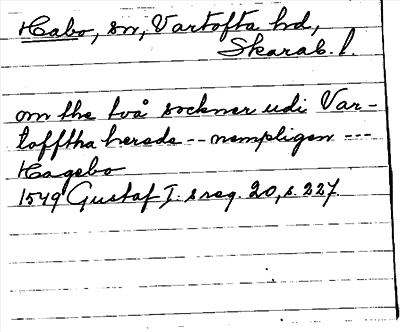 Habo, sn, Vartofta hd,
Skarab. l.
om the två sockner udi Var-
tofftha herede -- nempligen ---
Hagebo
1549 Gustaf I:s reg. 20, s. 227.